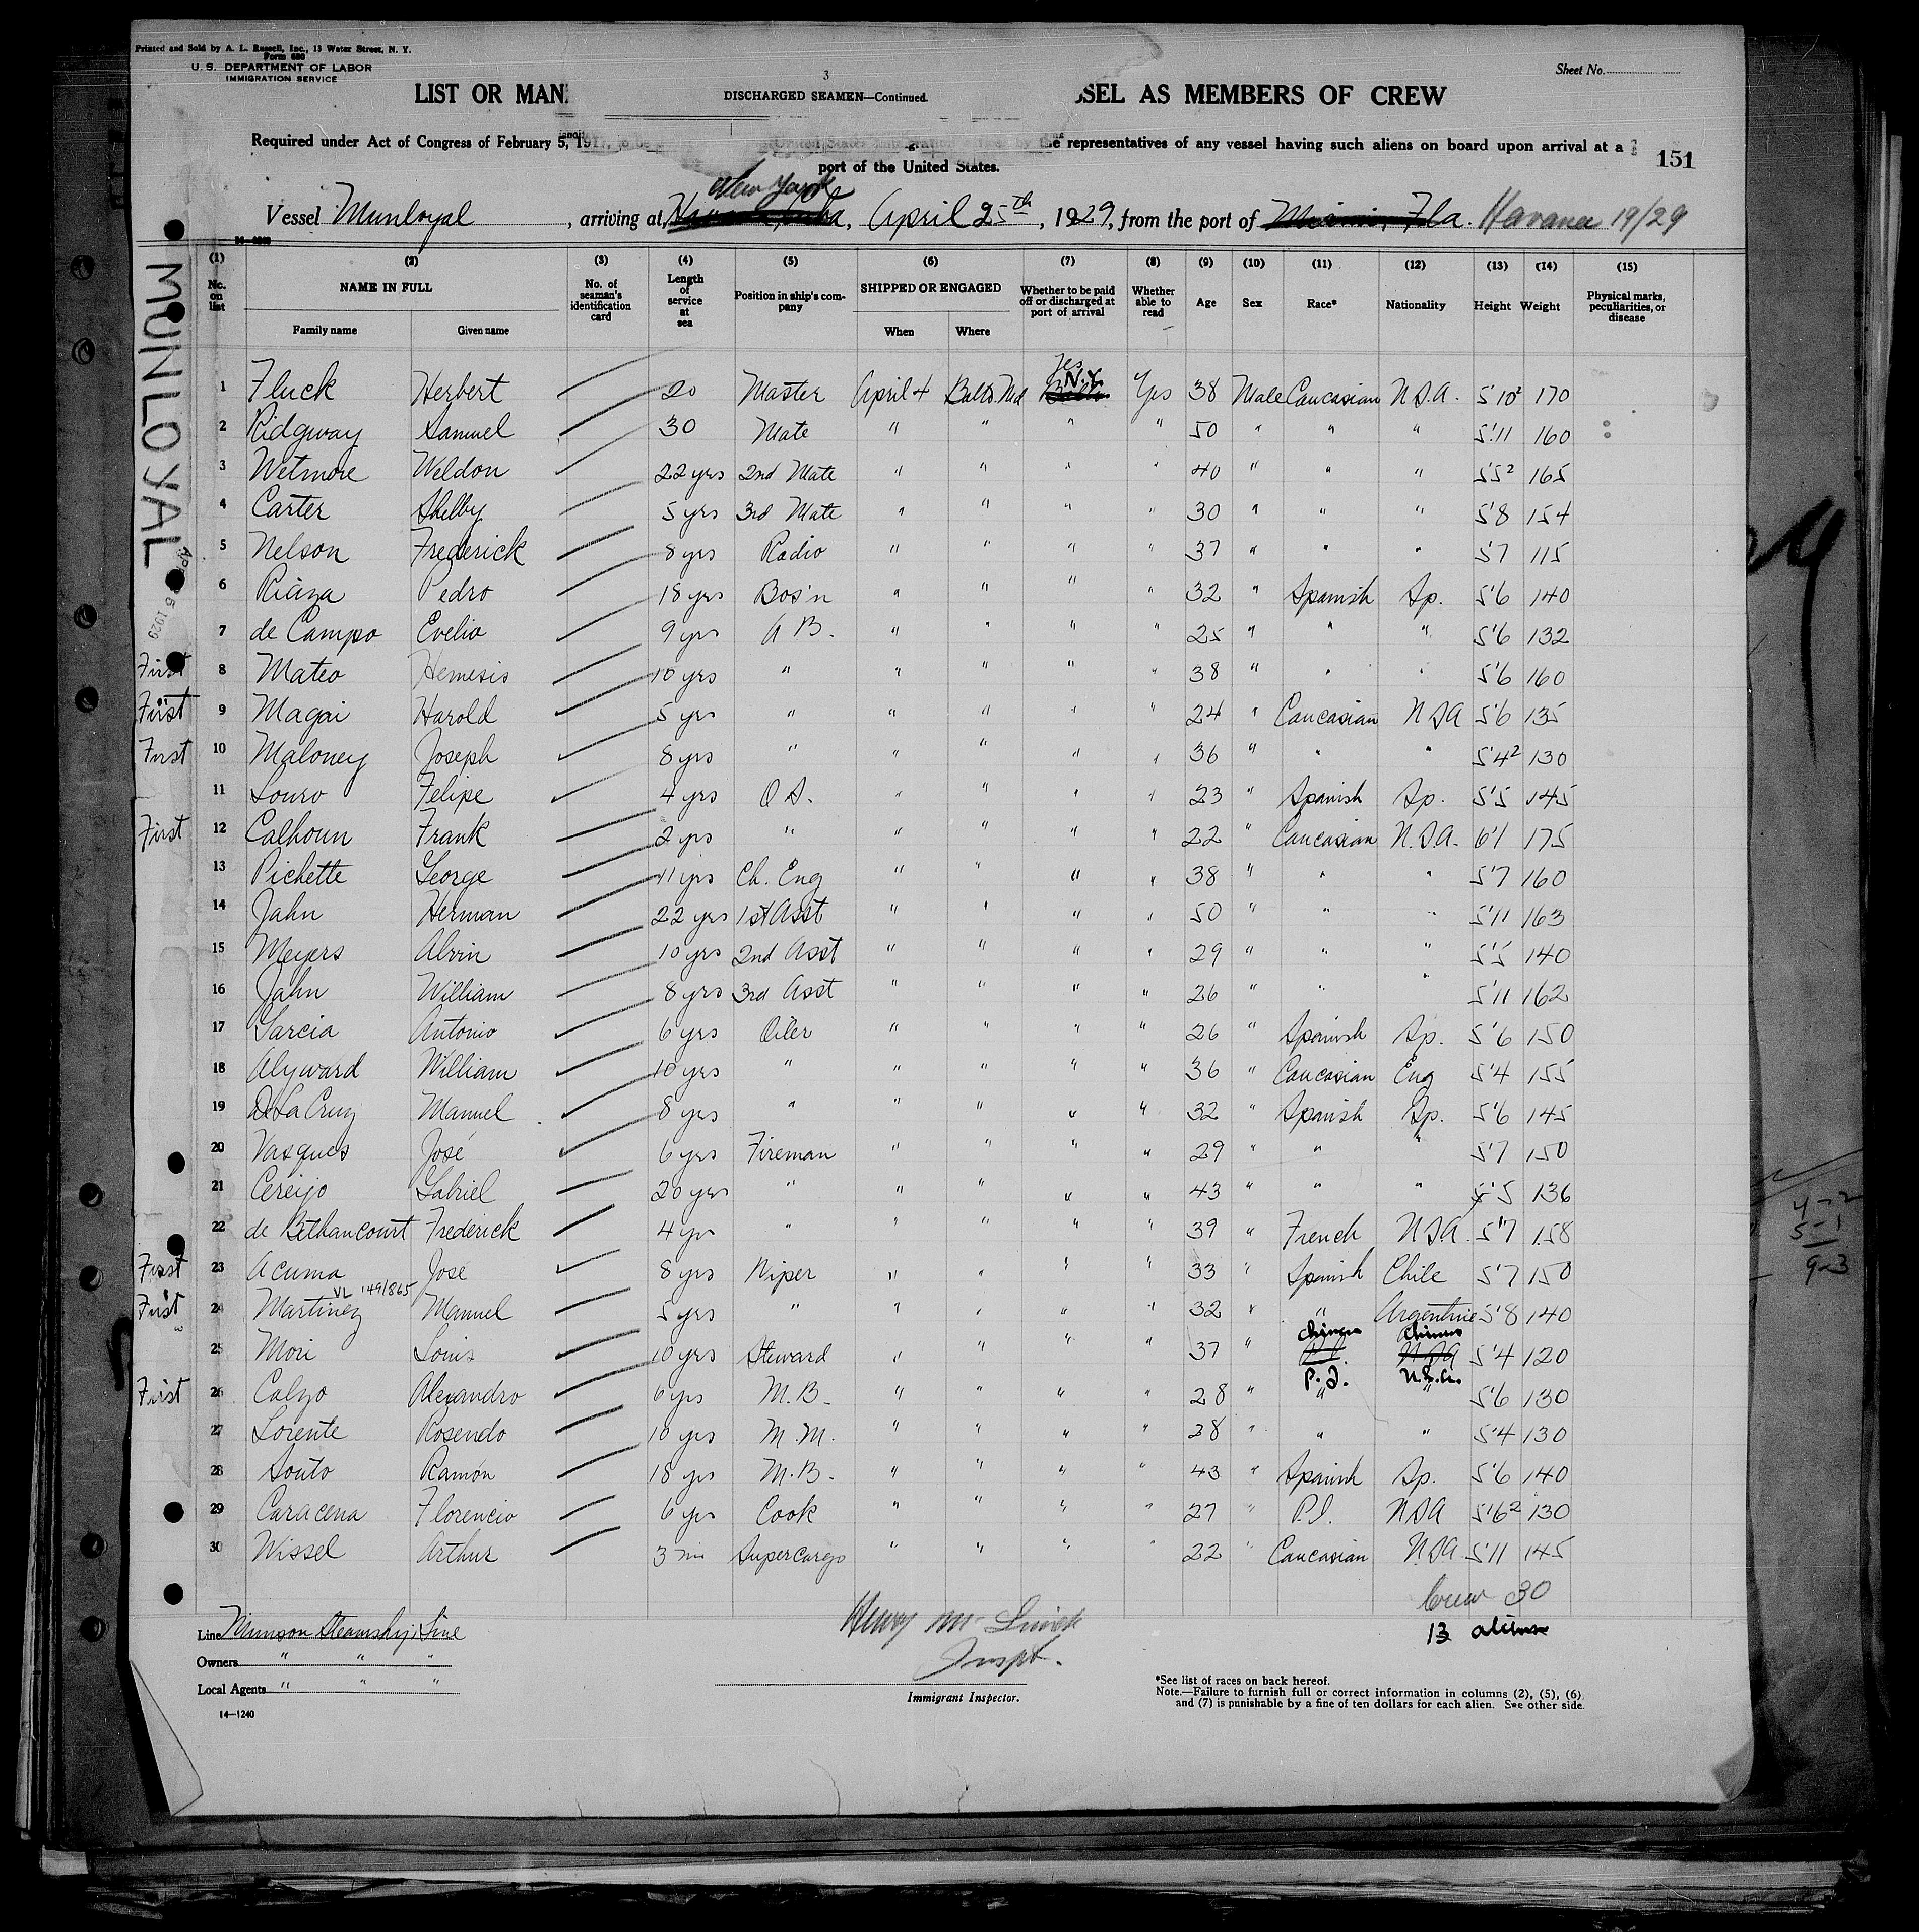 Printed and Sold by A. L. Russell, Inc., 13 Water Street, N. Y.
Form 680
U. S. DEPARTMENT OF LABOR
IMMIGRATION SERVICE
Sheet No.
3
LIST OR MAN DISCHARGED SEAMEN—Continued. SSEL AS MEMBERS OF CREW
Required under Act of Congress of February 5, 191 representatives of any vessel having such aliens on board upon arrival at a
port of the United States.
151
New York
Vessel Munloyal, arriving at Havana, Cuba, April 25th, 1929, from the port of Miami, Fla. Havana 19/29
14-1240
MUNLOYAL
(1) (2) (3) (4) (5) (6) (7) (8) (9) (10) (11) (12) (13) (14) (15)
No. on list NAME IN FULL Family name Given name No. of seaman's identification card Length of service at sea Position in ship's company SHIPPED OR ENGAGED When Where Whether to be paid off or discharged at port of arrival Whether able to read Age Sex Race* Nationality Height Weight Physical marks, peculiarities, or disease
Yes N.Y.
1 Fluck Herbert 20 Master April 4 Balto. Md Balto Yes 38 Male Caucasian U.S.A. 5'10² 170
2 Ridgway Samuel 30 Mate " " " " 50 " " " 5'11 160
3 Wetmore Weldon 22 yrs 2nd Mate " " " " 40 " " " 5'5² 165
4 Carter Shelby 5 yrs 3rd Mate " " " " 30 " " " 5'8 154
5 Nelson Frederick 8 yrs Radio " " " " 37 " " " 5'7 115
6 Riaza Pedro 18 yrs Bos'n " " " " 32 " Spanish Sp. 5'6 140
7 de Campo Evelio 9 yrs A B. " " " " 25 " " " 5'6 132
First 8 Mateo Hemesis 10 yrs " " " " " 38 " " " 5'6 160
First 9 Magai Harold 5 yrs " " " " " 24 " Caucasian U S A 5'6 135
First 10 Maloney Joseph 8 yrs " " " " " 36 " " " 5'4² 130
11 Louro Felipe 4 yrs O S. " " " " 23 " Spanish Sp. 5'5 145
First 12 Calhoun Frank 2 yrs " " " " " 22 " Caucasian U.S.A. 6'1 175
13 Pichette George 11 yrs Ch. Eng " " " " 38 " " " 5'7 160
14 Jahn Herman 22 yrs 1st Asst " " " " 50 " " " 5'11 163
15 Meyers Alvin 10 yrs 2nd Asst " " " " 29 " " " 5'5 140
16 Jahn William 8 yrs 3rd Asst " " " " 26 " " " 5'11 162
17 Garcia Antonio 6 yrs Oiler " " " " 26 " Spanish Sp. 5'6 150
18 Alyward William 10 yrs " " " " " 36 " Caucasian Eng 5'4 155
19 De La Cruz Manuel 8 yrs " " " " " 32 " Spanish Sp. 5'6 145
20 Vasques José 6 yrs Fireman " " " " 29 " " " 5'7 150
21 Cereijo Gabriel 20 yrs " " " " " 43 " " " 5'5 136
22 de Bethancourt Frederick 4 yrs " " " " " 39 " French U S A. 5'7 158
First 23 Acuma Jose 8 yrs Wiper " " " " 33 " Spanish Chile 5'7 150
VL 149/865
First 24 Martinez Manuel 5 yrs " " " " " 32 " " Argentine 5'8 140
Chinese Chinese
25 Mori Louis 10 yrs Steward " " " " 37 " P.I. U S A 5'4 120
P.I. U.S.A.
First 26 Calzo Alexandro 6 yrs M.B. " " " " 28 " " " 5'6 130
27 Lorente Rosendo 10 yrs M.M. " " " " 28 " " " 5'4 130
28 Souto Ramón 18 yrs M.B. " " " " 43 " Spanish Sp. 5'6 140
29 Caracena Florencio 6 yrs Cook " " " " 27 " P.I. U S A 5'6² 130
30 Wissel Arthur 3 mo Supercargo " " " " 22 " Caucasian U.S.A 5'11 145
Crew 30
13 aliens
4-2
5-1
9-3
Line Munson Steamship Line
Owners " " "
Local Agents " " "
14—1240
Henry Mc
Inspt.
Immigrant Inspector.
*See list of races on back hereof.
Note.—Failure to furnish full or correct information in columns (2), (5), (6)
and (7) is punishable by a fine of ten dollars for each alien. See other side.